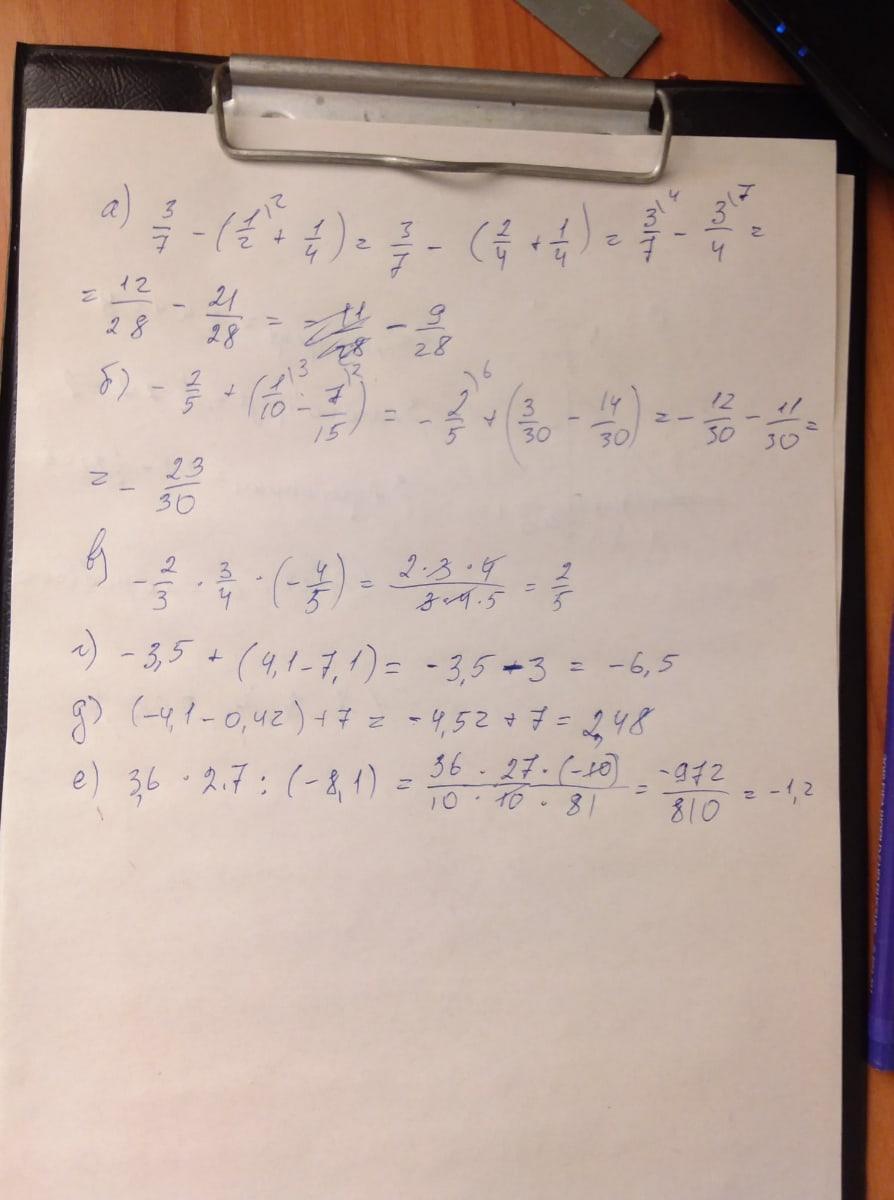 а) 3/7 - (1/2\2 + 1/4) = 3/7 - (2/4 + 1/4) = 3/7\4 - 3/4\7 =
= 12/28 - 21/28 = - 9/28
б) - 2/5 + (1/10\3 - 7/15\2) = - 2/5\6 + (3/30 - 14/30) = - 12/30 - 11/30 =
= - 23/30
в) - 2/3 · 3/4 · (- 4/5) = 2·3·4/3·4·5 = 2/5
г) -3,5 + (4,1-7,1) = -3,5 - 3 = -6,5
д) (-4,1-0,42)+7 = -4,52+7 = 2,48
е) 3,6 · 2.7 : (-8,1) = 36 · 27 · (-10)/10 · 10 · 81 = -972/810 = -1,2